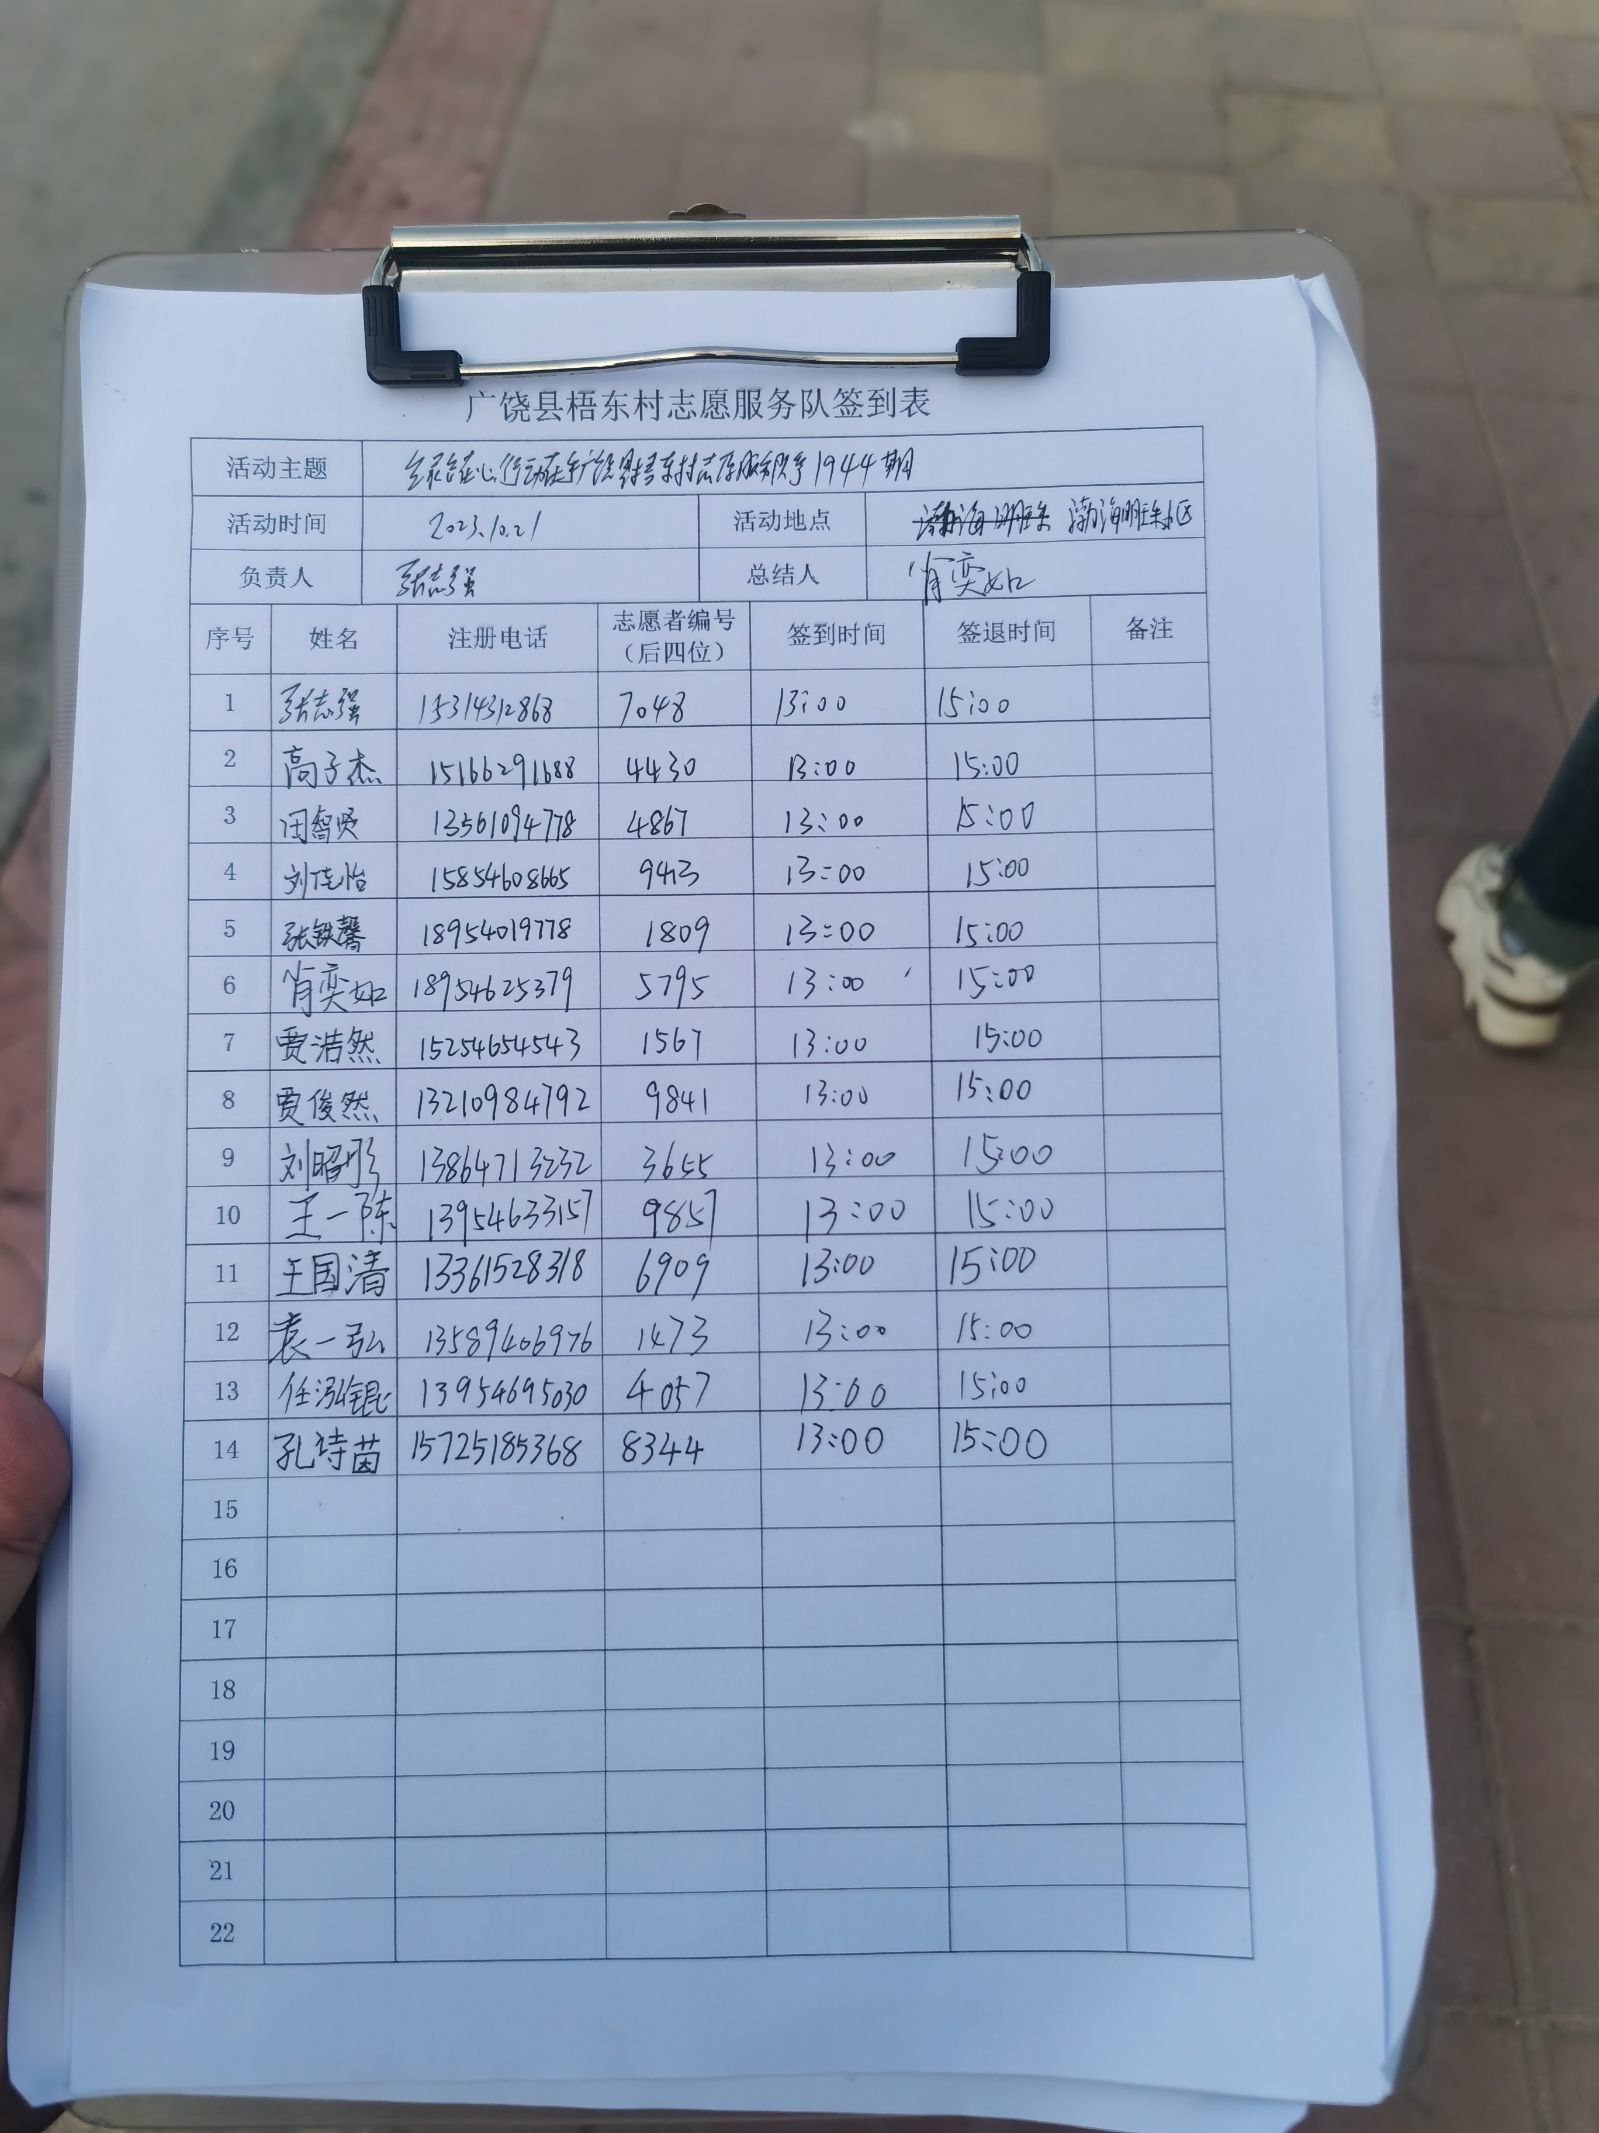 广饶县梧东村志愿服务队签到表
活动主题 行动在广饶县梧东村志愿服务队第1944期
活动时间 2023.10.21 活动地点 渤海明珠 渤海明珠小区
负责人 张志强 总结人 肖奕如
序号 姓名 注册电话 志愿者编号（后四位） 签到时间 签退时间 备注
1 张志强 15314312868 7048 13:00 15:00
2 高子杰 15166291688 4430 13:00 15:00
3 闫智贤 13561094778 4867 13:00 15:00
4 刘佳怡 15854608665 9413 13:00 15:00
5 张轶馨 18954019778 1809 13:00 15:00
6 肖奕如 18954625379 5795 13:00 15:00
7 贾浩然 15254654543 1567 13:00 15:00
8 贾俊然 13210984792 9841 13:00 15:00
9 刘昭彤 13864713232 3655 13:00 15:00
10 王一陈 13954633157 9857 13:00 15:00
11 王国清 13361528318 6909 13:00 15:00
12 袁一弘 13589406976 1473 13:00 15:00
13 任泓锟 13954695030 4057 13:00 15:00
14 孔诗茵 15725185368 8344 13:00 15:00
15
16
17
18
19
20
21
22